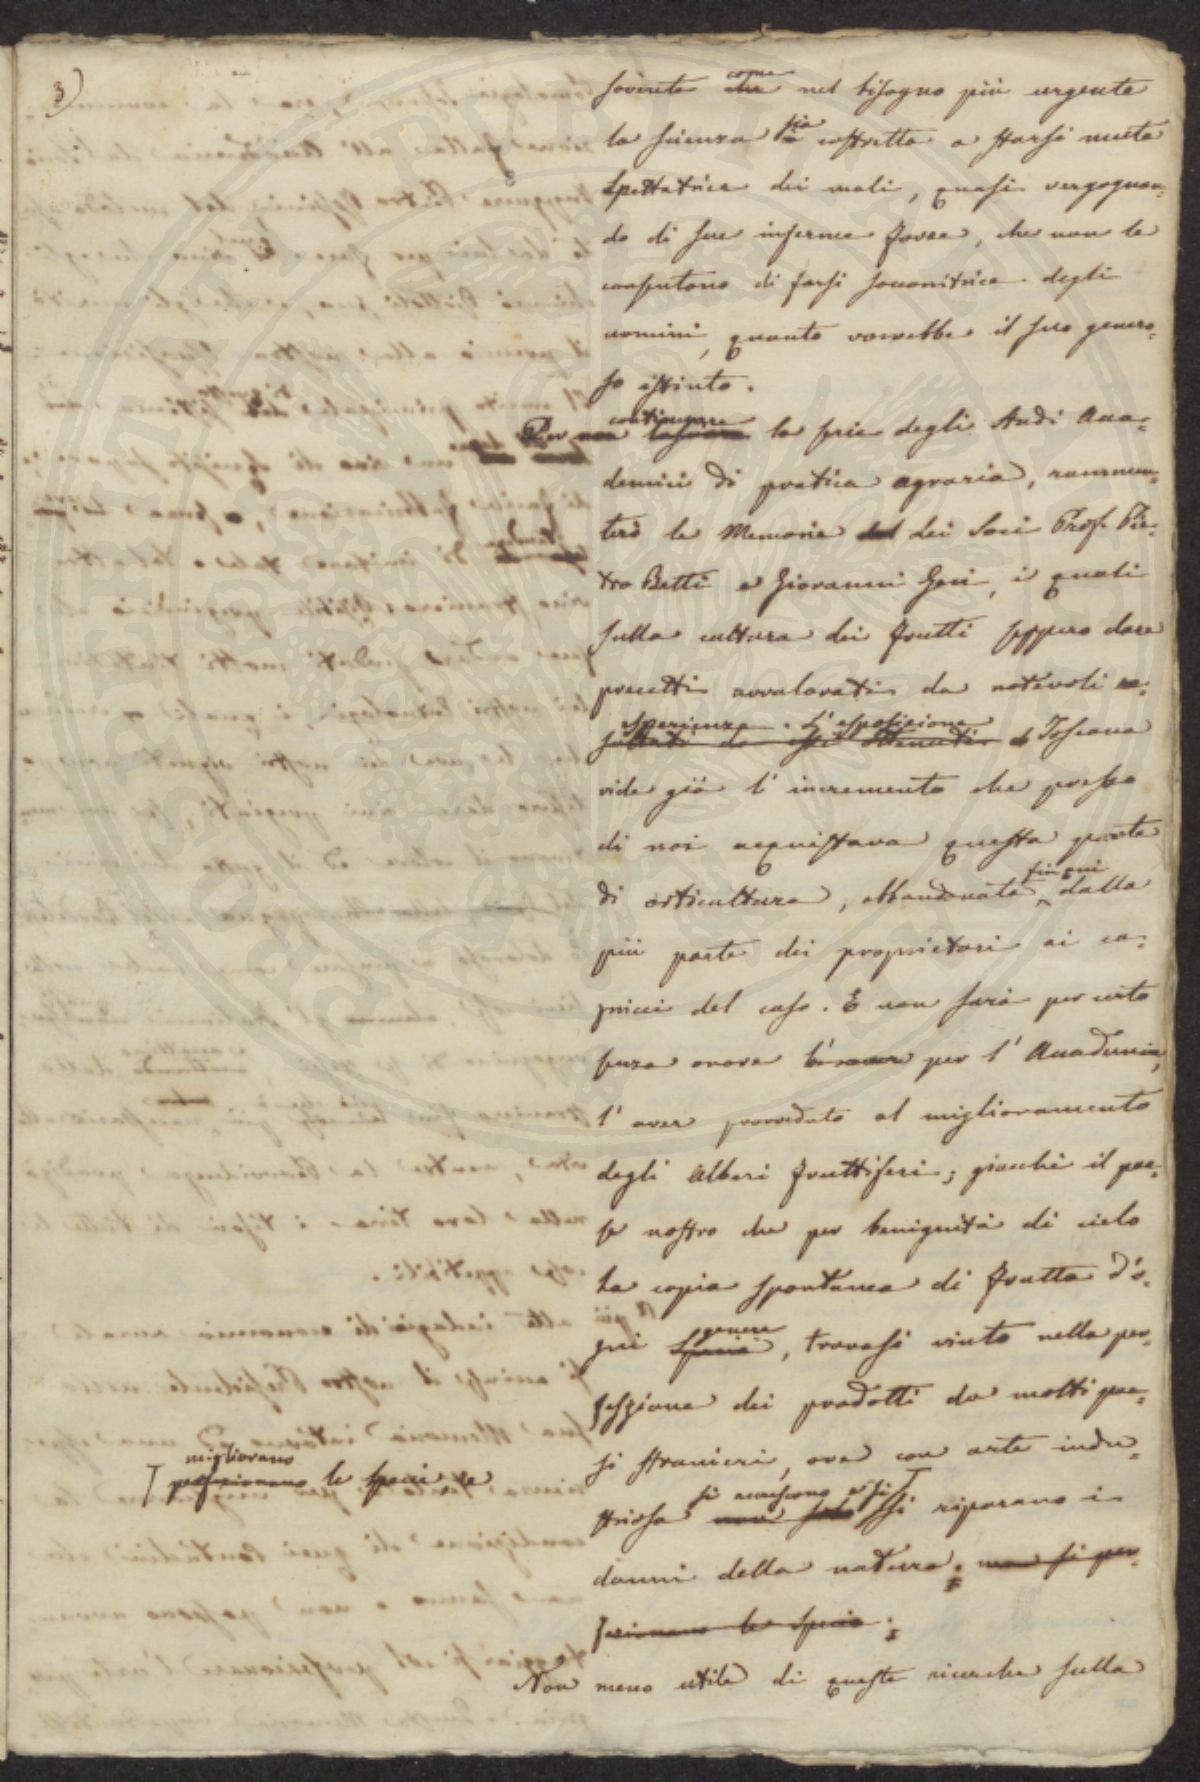 3)
sovente come che nel bisogno più urgente
la scienza sia è costretta a starsi muta
spettatrice dei mali, quasi vergognan=
do di sue inferme forze, che non le
consentono di farsi soccorritrice degli
uomini, quanto vorrebbe il suo genero=
so istinto.
continuare
Per non lasciare la serie degli Studi Acca=
demici di pratica agraria, rammen=
terò le Memorie del dei Soci Prof. Pie=
tro Betti e Giovanni Geri, i quali
sulla cultura dei frutti seppero dare
precetti avvalorati da notevoli re=
esperienze. L'esposizione
sultati da essi ottenuti di Toscana
vide già l'incremento che presso
di noi acquistava questa parte
di orticultura, abbandonata fin qui dalla
più parte dei proprietari ai ca=
pricci del caso. E non sarà per certo
senza onore per l'Accademia,
l'aver provveduto al miglioramento
degli Alberi fruttiferi; giacchè il pae=
se nostro che per benignità di cielo
ha copia spontanea di frutta d'o=
genere
gni specie, trovasi vinto nella per=
fezione dei prodotti da molti pae=
si stranieri, ove con arte indu=
si accrescono e si
striosa non solo si riparano i
danni della natura; ma si per=
fezionano le specie.
migliorano
perfezionano le specie, e
Non meno utile di queste ricerche sulla